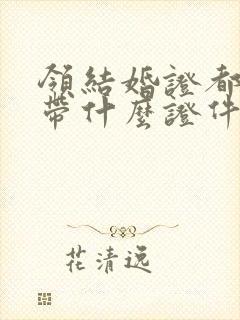 領結婚證都
帶什麼證件
花清逸